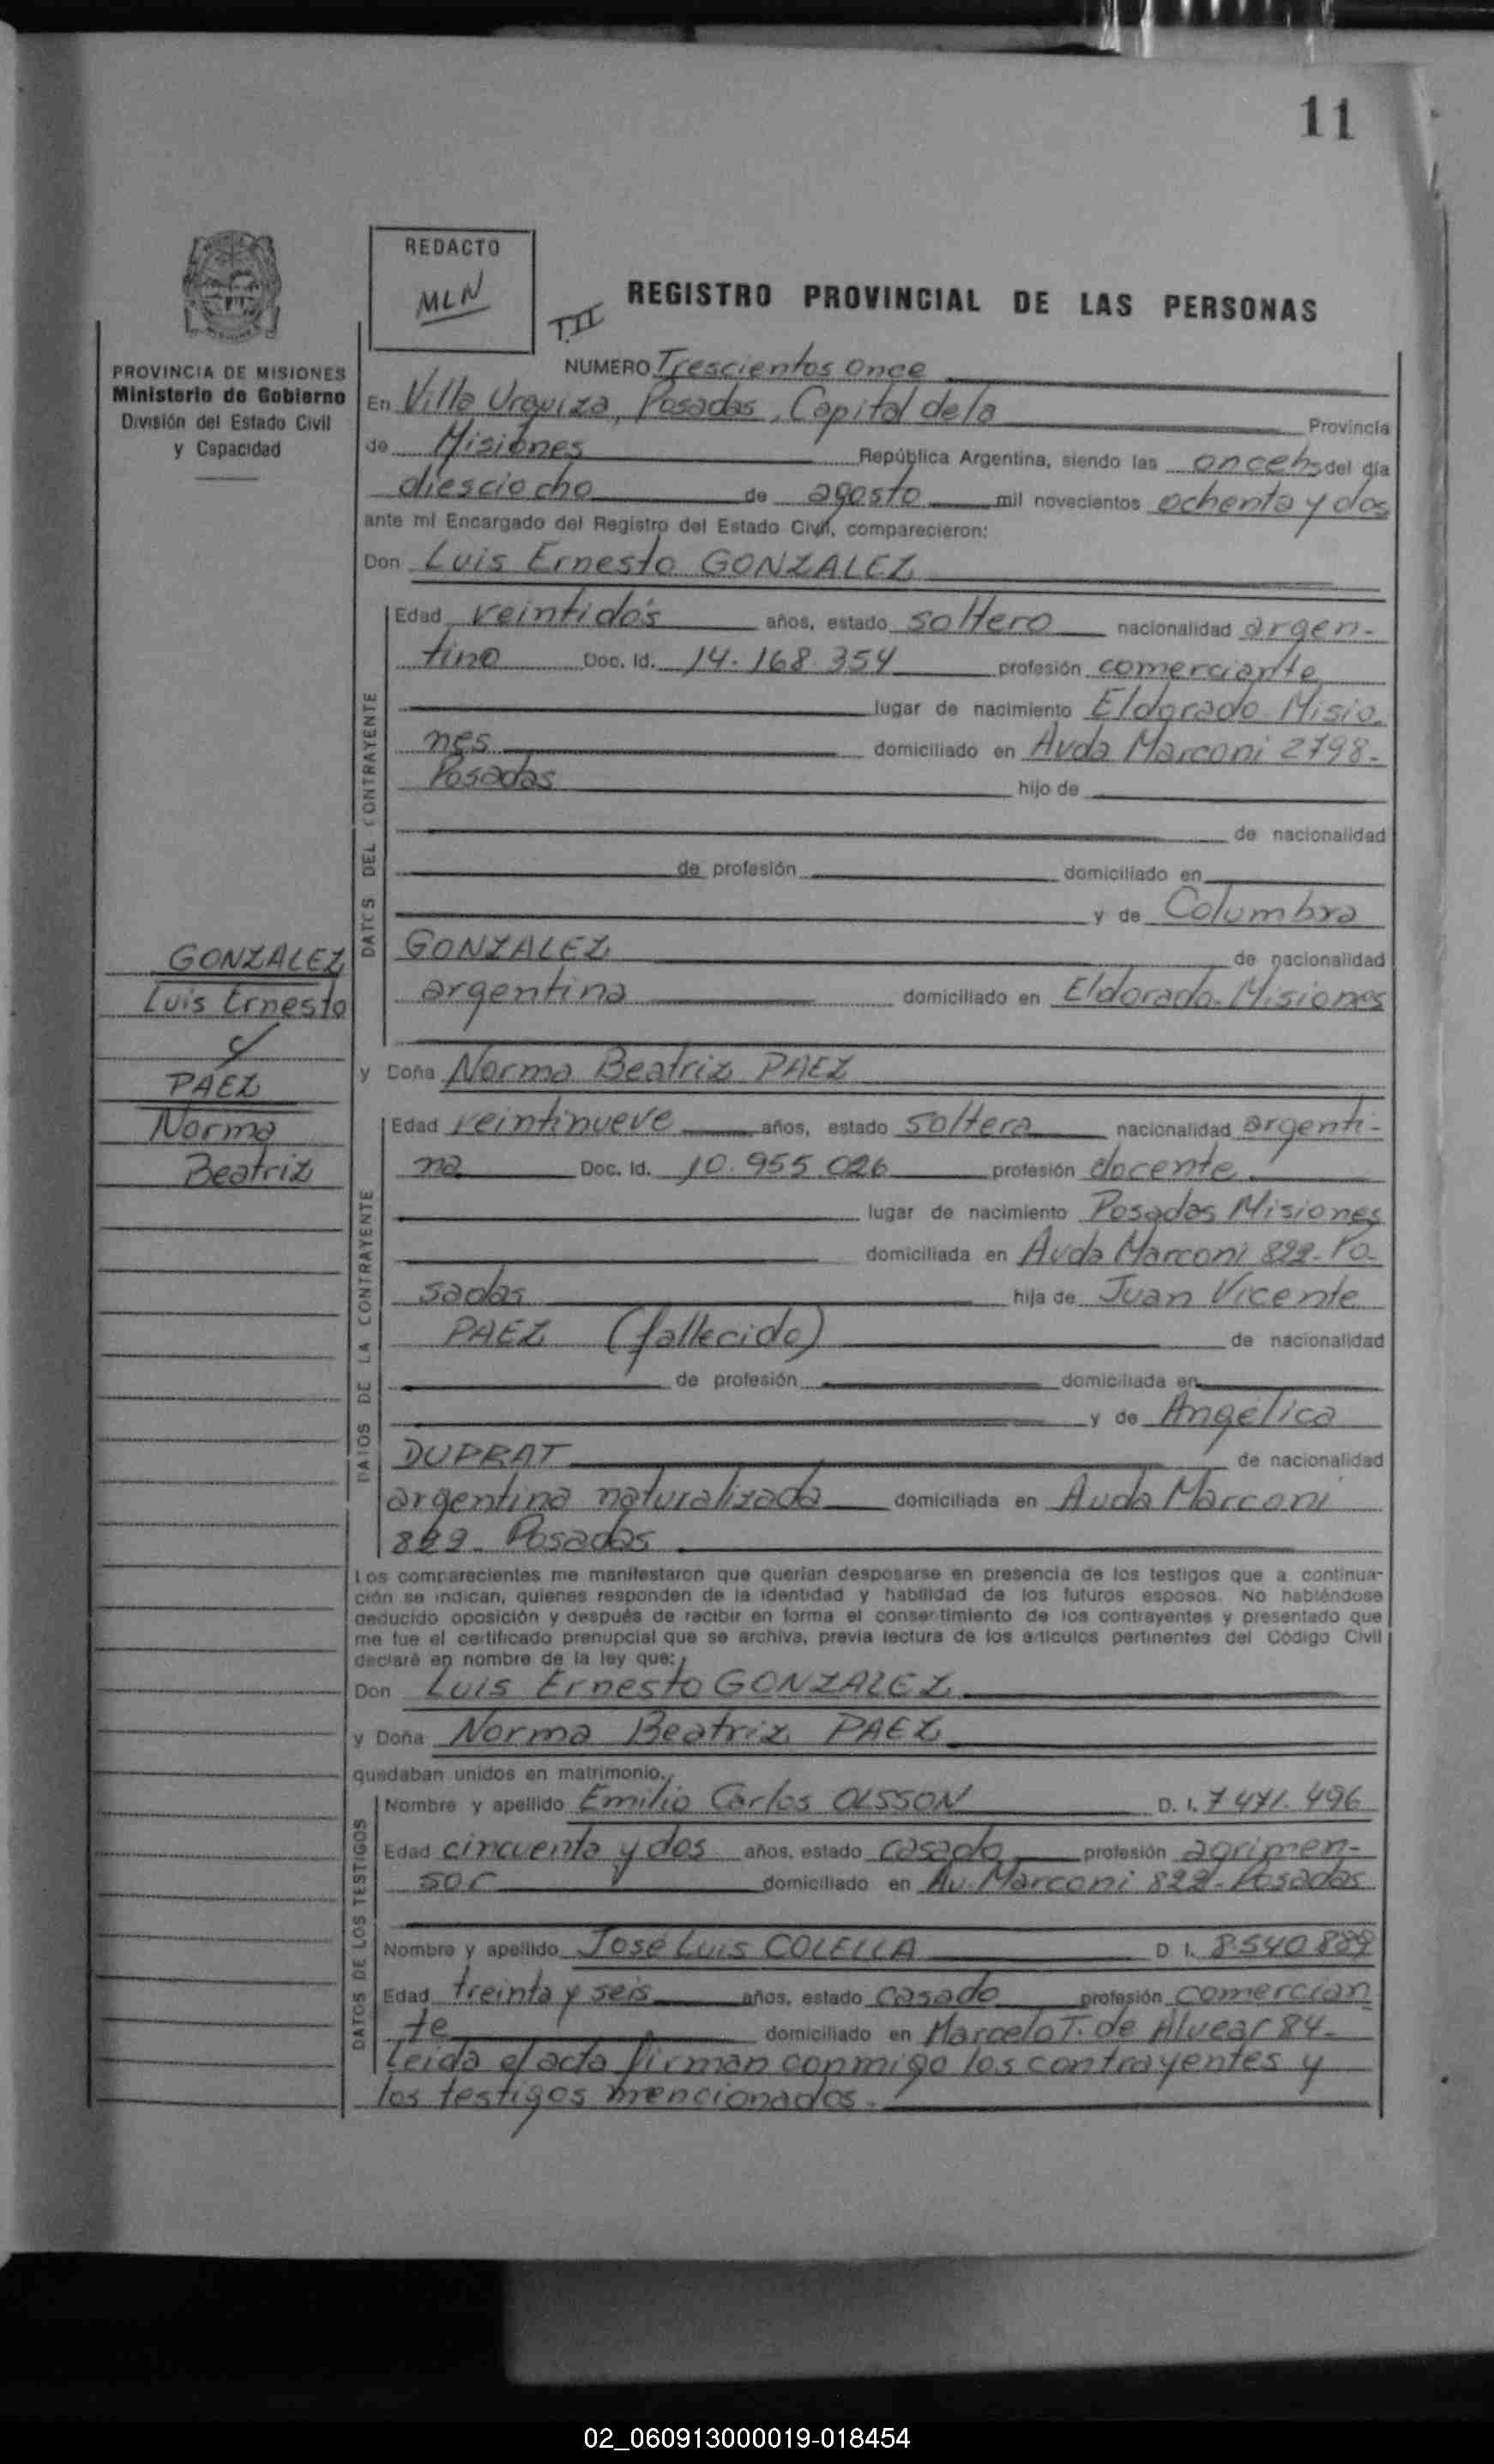 11
REDACTO
MLN
T.II
REGISTRO PROVINCIAL DE LAS PERSONAS
PROVINCIA DE MISIONES
Ministerio de Gobierno
División del Estado Civil
y Capacidad
NUMERO Trescientos Once
En Villa Urquiza, Posadas, Capital de la Provincia
de Misiones República Argentina, siendo las once hs del día
diesciocho de agosto mil novecientos ochenta y dos
ante mí Encargado del Registro del Estado Civil, comparecieron:
Don Luis Ernesto GONZALEZ
DATOS DEL CONTRAYENTE
Edad veintidós años, estado soltero nacionalidad argen-
tino Doc. Id. 14.168.354 profesión comerciante
lugar de nacimiento Eldorado Misio-
nes domiciliado en Avda Marconi 2798-
Posadas hijo de
de nacionalidad
de profesión domiciliado en
y de Columbra
GONZALEZ de nacionalidad
argentina domiciliado en Eldorado. Misiones
GONZALEZ
Luis Ernesto
y
PAEZ
Norma
Beatriz
y Doña Norma Beatriz PAEZ
DATOS DE LA CONTRAYENTE
Edad veintinueve años, estado soltera nacionalidad argenti-
na Doc. Id. 10.955.026 profesión docente
lugar de nacimiento Posadas Misiones
domiciliada en Avda Marconi 822- Po-
sadas hija de Juan Vicente
PAEZ (fallecido) de nacionalidad
de profesión domiciliada en
y de Angélica
DUPRAT de nacionalidad
argentina naturalizada domiciliada en Avda Marconi
829- Posadas
Los comparecientes me manifestaron que querían desposarse en presencia de los testigos que a continua-
ción se indican, quienes responden de la identidad y habilidad de los futuros esposos. No habiéndose
deducido oposición y después de recibir en forma el consentimiento de los contrayentes y presentado que
me fue el certificado prenupcial que se archiva, previa lectura de los artículos pertinentes del Código Civil
declaré en nombre de la ley que:
Don Luis Ernesto GONZALEZ
y Doña Norma Beatriz PAEZ
quedaban unidos en matrimonio.
DATOS DE LOS TESTIGOS
Nombre y apellido Emilio Carlos OLSSON D. I. 7.471.496
Edad cincuenta y dos años, estado casado profesión agrimen-
sor domiciliado en Av. Marconi 822- Posadas
Nombre y apellido José Luis COLELLA D. I. 8540889
Edad treinta y seis años, estado casado profesión comercian
te domiciliado en Marcelo T. de Alvear 84-
Leída el acta firman conmigo los contrayentes y
los testigos mencionados.-
02_060913000019-018454